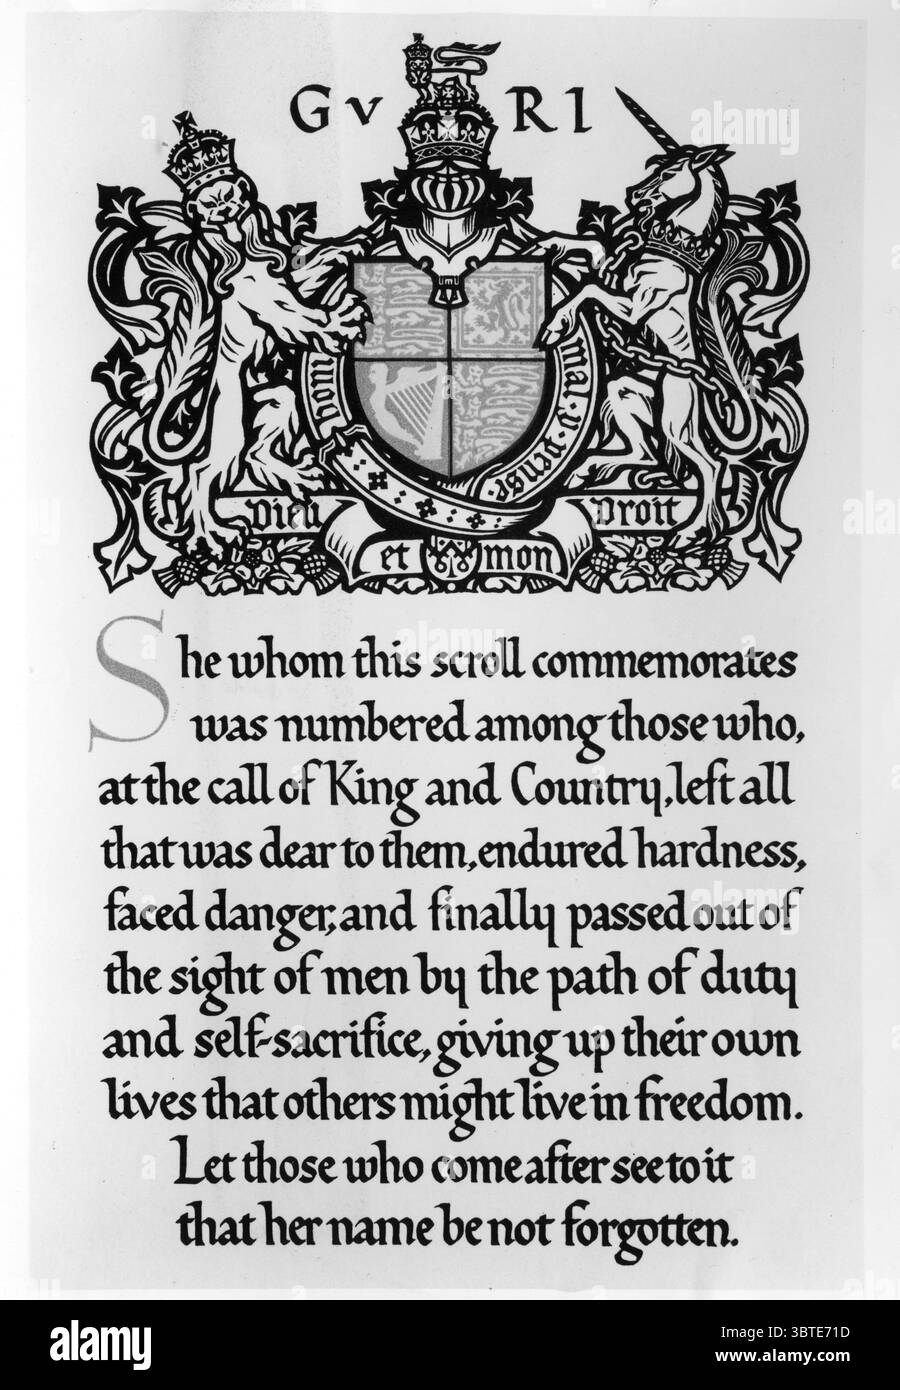 G V RI
honi
mal · y · pense
Dieu Droit
et mon
She whom this scroll commemorates
was numbered among those who,
at the call of King and Country, left all
that was dear to them, endured hardness,
faced danger, and finally passed out of
the sight of men by the path of duty
and self-sacrifice, giving up their own
lives that others might live in freedom.
Let those who come after see to it
that her name be not forgotten.
alamy
Image ID: 3BTE71D
www.alamy.com